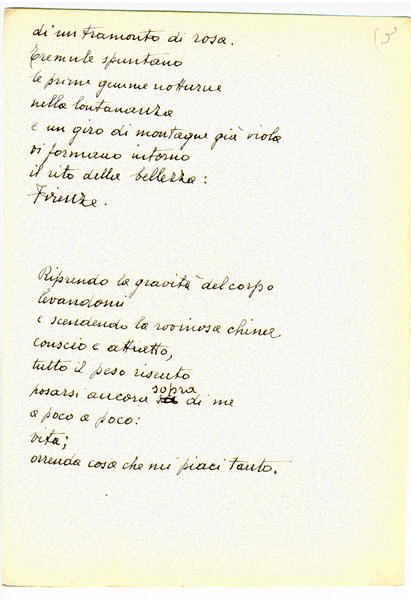 5
di un tramonto di rosa.
Tremule spuntano
le prime gemme notturne
nella lontananza
e un giro di montagne già viola
vi formano intorno
il rito della bellezza:
Firenze.
Riprendo la gravità del corpo
levandomi
e scendendo la rovinosa china
conscio e affretto,
tutto il peso risento
posarsi ancora sopra di me
a poco a poco:
vita;
orrenda cosa che mi piaci tanto.